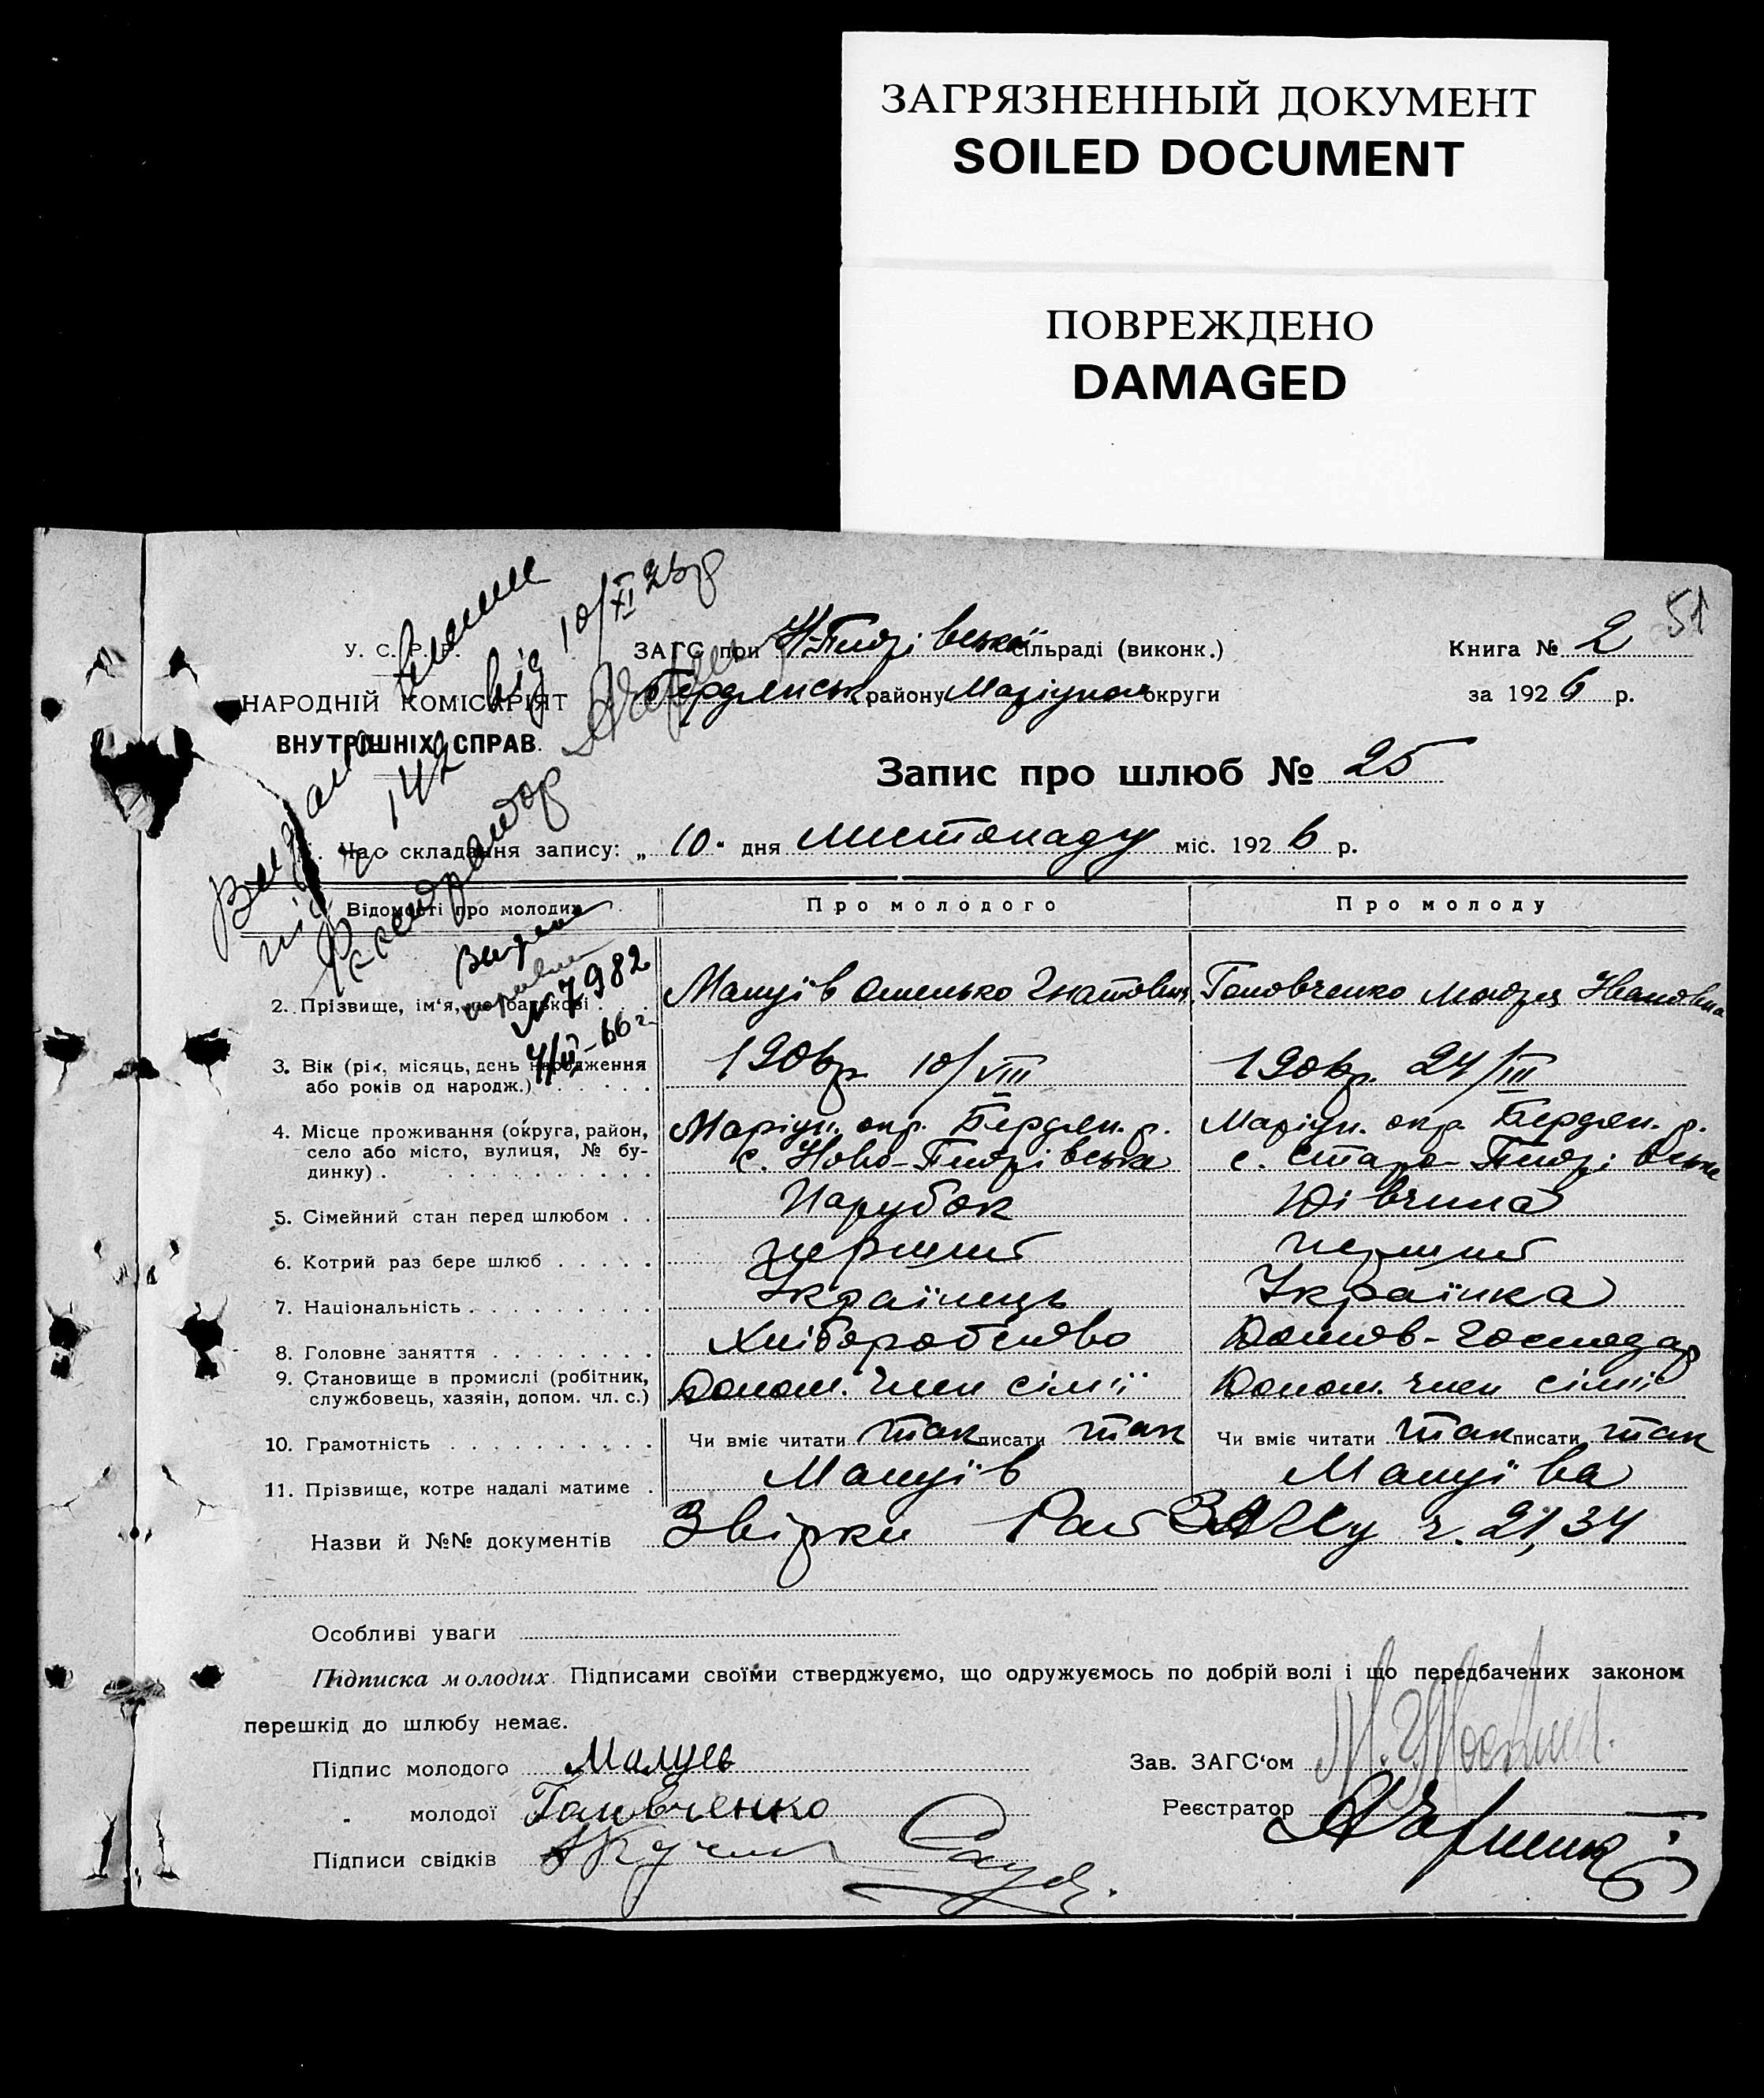 ЗАГРЯЗНЕННЫЙ ДОКУМЕНТ
SOILED DOCUMENT
ПОВРЕЖДЕНО
DAMAGED
51
У. С. Р. Р.
НАРОДНІЙ КОМІСАРІЯТ
ВНУТРІШНІХ СПРАВ.
ЗАГС при сільраді (виконк.)
Бердянськ району Маріуполь округи
Книга № 2
за 1926 р.
від 10/XI 26р
142
Запис про шлюб № 25
Час складання запису: „ 10 " дня листопаду міс. 1926 р.
Відомості про молодих
Про молодого
Про молоду
№ 7982
2. Прізвище, ім'я, по батькові . . .
Мануїв Гнатович
Головченко Івановна
3. Вік (рік, місяць, день народження або років од народж.) . . . . . .
1906р. 10/VIII
1906р. 24/III
4. Місце проживання (округа, район, село або місто, вулиця, № будинку) . . . . . . . . . .
Маріуп. окр. Бердян. р.
с. Ново-Петрівська
Маріуп. окр. Бердян. р.
с. Старо-Петрівська
5. Сімейний стан перед шлюбом . .
Парубок
Дівчина
6. Котрий раз бере шлюб . . . . .
перший
перший
7. Національність . . . . . . . . .
Українець
Українка
8. Головне заняття . . . . . . . .
Хліборобство
Домов-господар
9. Становище в промислі (робітник, службовець, хазяїн, допом. чл. с.)
Допом. член сім'ї
Допом. член сім'ї
10. Грамотність . . . . . . . . . .
Чи вміє читати так писати так
Чи вміє читати так писати так
11. Прізвище, котре надалі матиме .
Мануїв
Мануїва
Назви й №№ документів
Звірки Рай ЗАГСу ч. 21, 34
Особливі уваги
Підписка молодих. Підписами своїми стверджуємо, що одружуємось по добрій волі і що передбачених законом
перешкід до шлюбу немає.
Підпис молодого
Зав. ЗАГС'ом
" молодої Головченко
Реєстратор
Підписи свідків